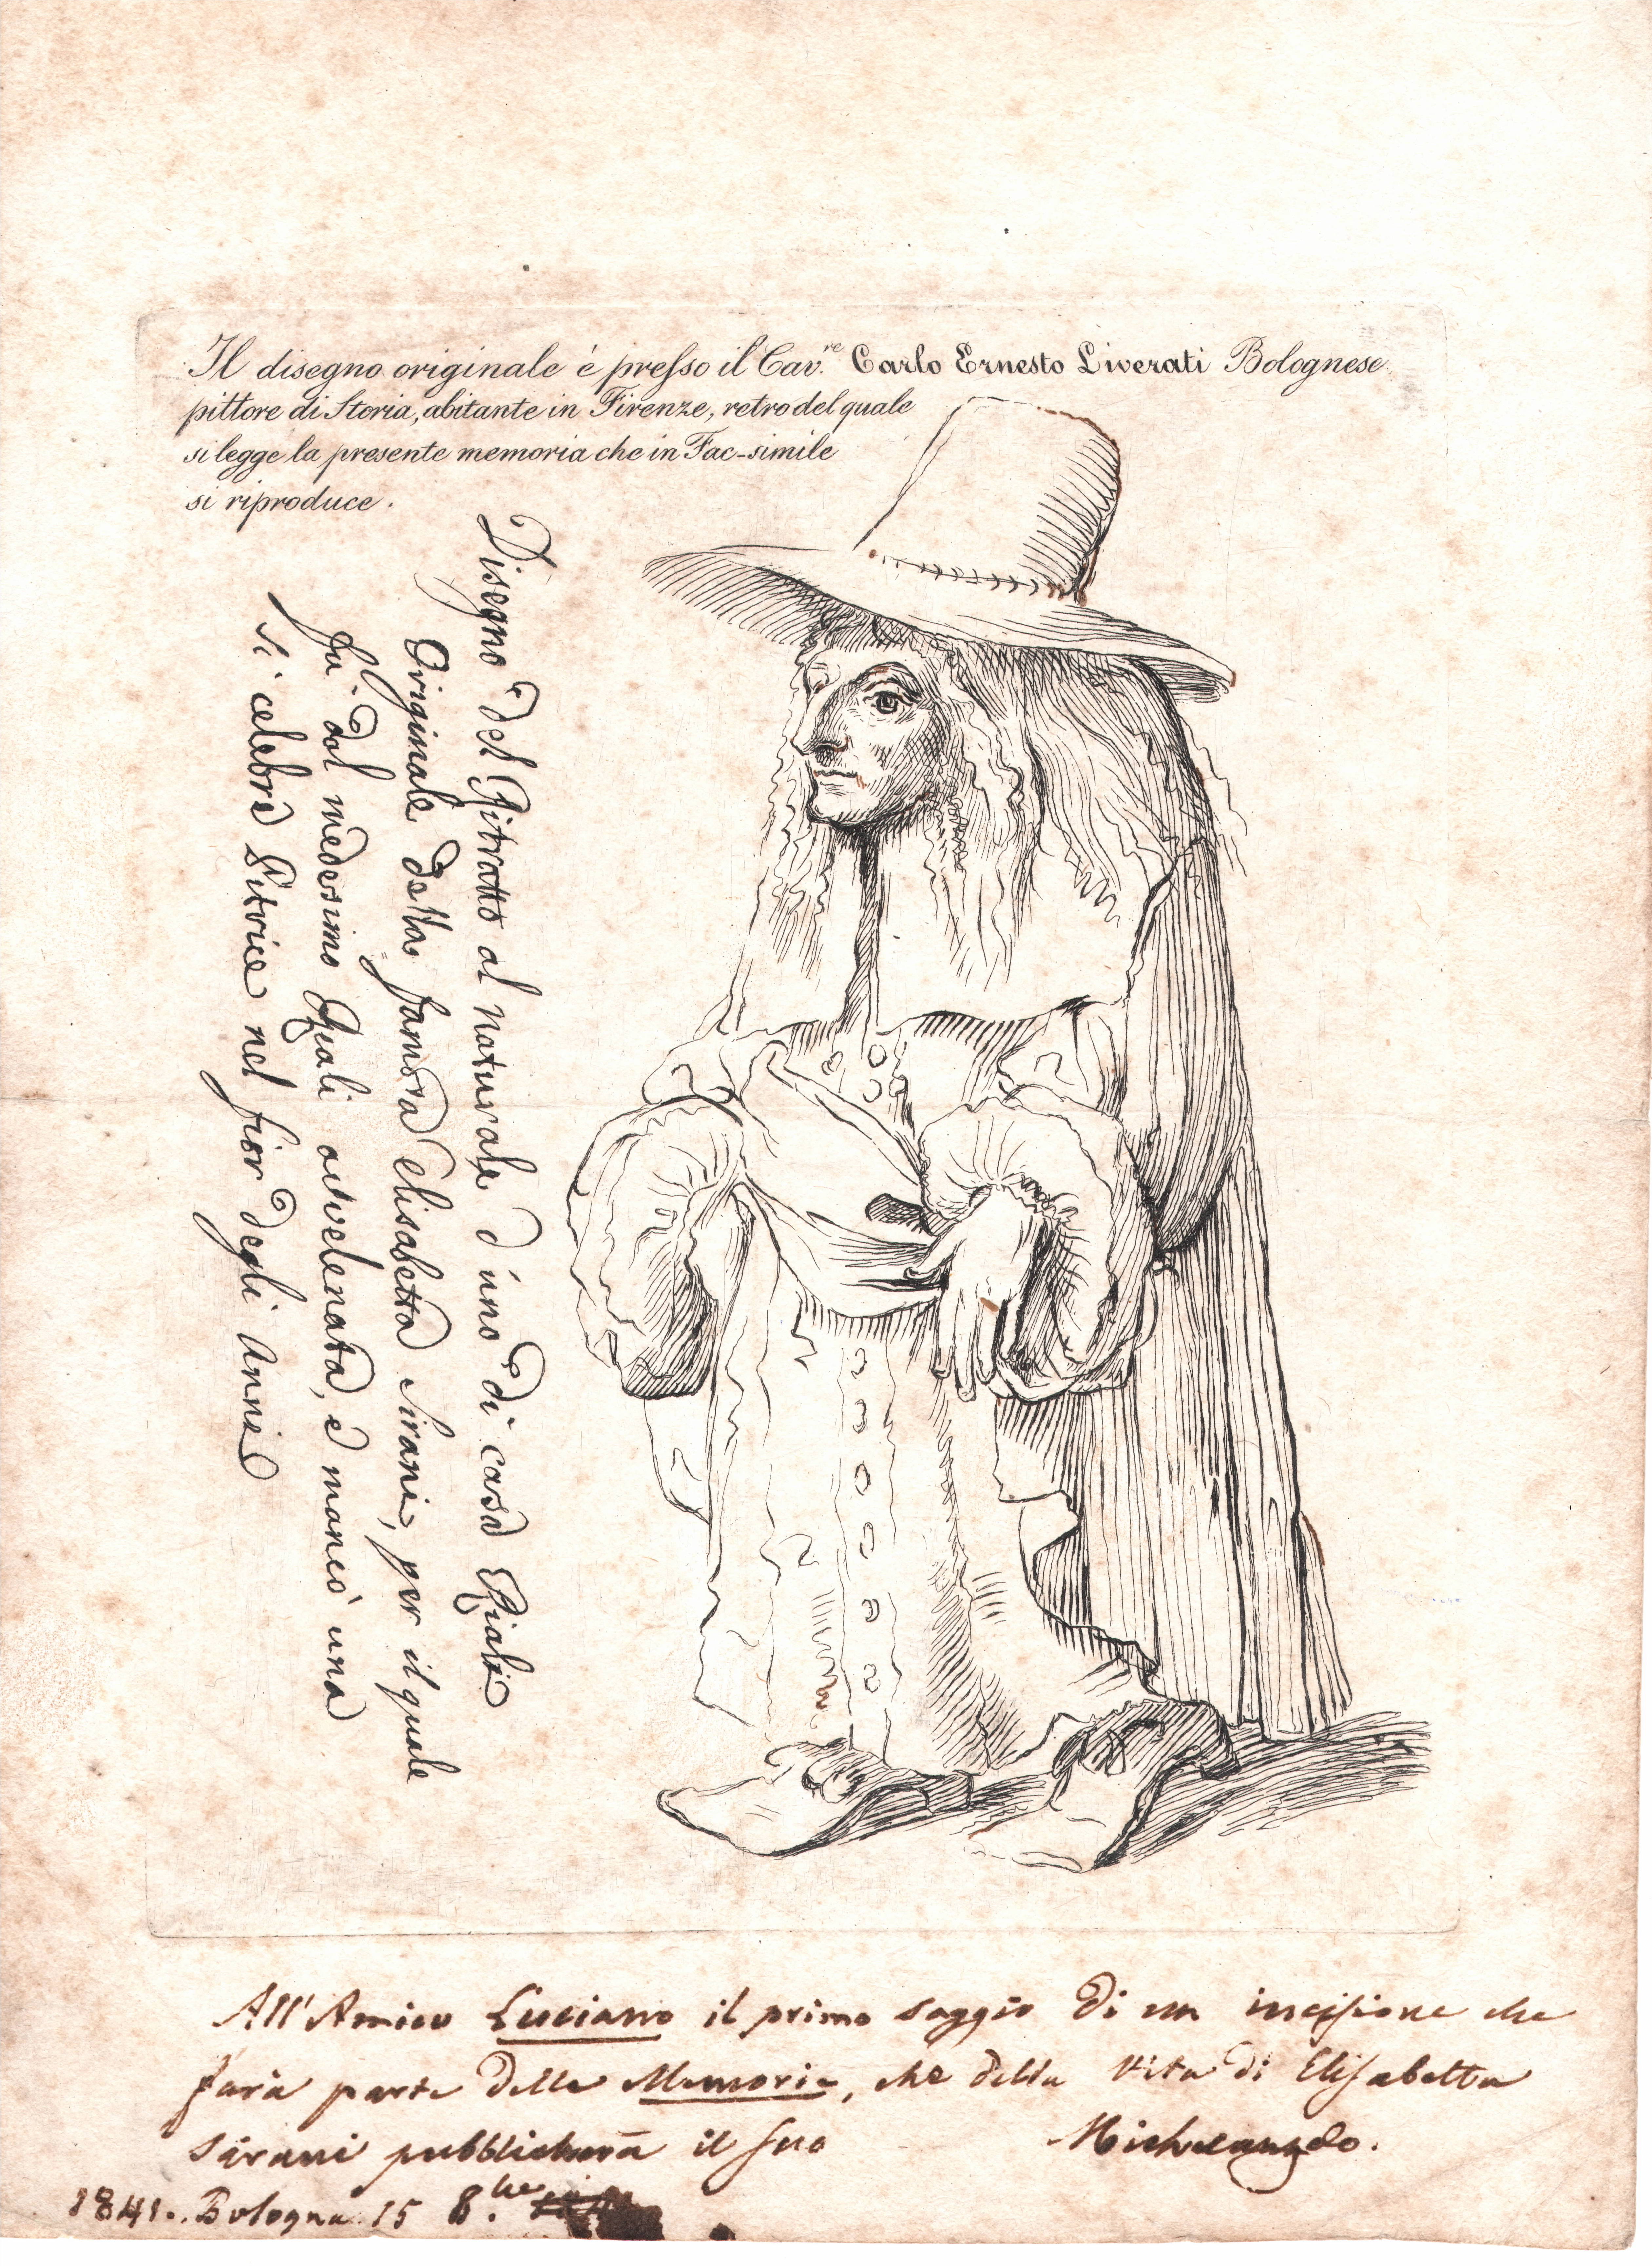 Il disegno originale è presso il Cav.re Carlo Ernesto Liverati Bolognese
pittore di Storia, abitante in Firenze, retro del quale
si legge la presente memoria che in Fac-simile
si riproduce.
Disegno del Ritratto al naturale d'uno di casa Riali
Originale della famosa Elisabetta Sirani, per il quale
fu dal medesimo Riali avvelenata, e mancò una
sì celebre Pitrice nel fior degli Anni
All'Amico Luciano il primo saggio di un incisione che
farà parte delle Memorie, che della Vita di Elisabetta
Sirani pubblicherà il suo Michelangelo.
1841. Bologna 15 8.bre